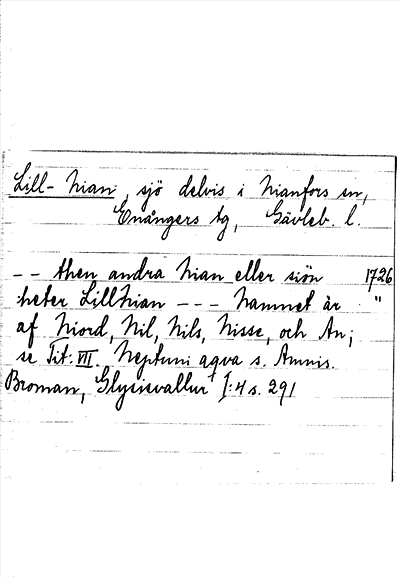 Lill-Nian, sjö delvis i Nianfors sn,
Enångers tg, Gävleb. l.
-- then andra Nian eller siön 1726
heter LillNian --- Namnet är "
af Niord, Nil, Nils, Nisse, och An;
se Tit. VIII. Neptuni aqva s. Amnis.
Broman, Glysisvallur I:4 s. 291